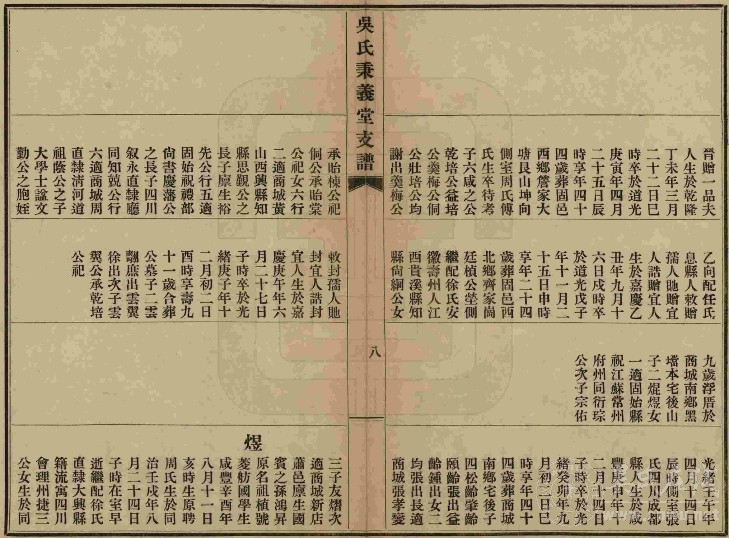 晉贈一品夫
人生於乾隆
丁未年三月
二十二日巳
時卒於道光
庚寅年四月
二十五日辰
時享年四十
四歲葬固邑
西鄉營家大
塘艮山坤向
側室周氏傅
氏生卒待考
子六咸之公
乾培公益培
公羹梅公侗
公壯培公均
謝出羹梅公
乙向配任氏
息縣人敕贈
孺人馳贈宜
人誥贈宜人
生於嘉慶乙
丑年九月十
六日戌時卒
於道光戊子
年十一月二
十五日申時
享年二十四
歲葬固邑西
北鄉齊家崗
廷楨公塋側
繼配徐氏安
徽壽州人江
西貴溪縣知
縣尚綱公女
九歲浮厝於
商城南鄉黑
壋本宅後山
子二焜煜女
一適固始縣
祝江蘇常州
府州同衍琮
公次子宗佑
光緒壬午年
四月十四日
辰時側室張
氏四川成都
縣人生於咸
豐庚申年十
二月十四日
子時卒於光
緒癸卯年九
月初三日巳
時享年四十
四歲葬商城
南鄉宅後子
四松齡肇齡
頤齡張出益
齡鍾出女二
均張出長適
商城張孝變
吳氏秉義堂支譜
八
承貽棟公祀
侗公承貽棠
公祀女六行
二適商城黃
山西興縣知
縣思觀公之
長子廩生裕
先公行五適
固始祝禮部
尚書慶藩公
之長子四川
叙永直隸廳
同知就公行
六適商城周
直隸清河道
祖蔭公之子
大學士諡文
勤公之胞姪
敕封孺人馳
封宜人誥封
宜人生於嘉
慶庚午年六
月二十七日
子時卒於光
緒庚子年十
二月初二日
酉時享壽九
十一歲合葬
公墓子二雲
翾庶出雲翼
徐出次子雲
翼公承乾培
公祀
三子友熠次
適商城新店
蕭邑廩生國
賓之孫鴻昇
煜
原名祖植號
菱舫國學生
咸豐辛酉年
八月十一日
亥時生原聘
周氏生於同
治壬戌年八
月二十四日
子時在室早
逝繼配徐氏
直隸大興縣
籍流寓四川
會理州捷三
公女生於同